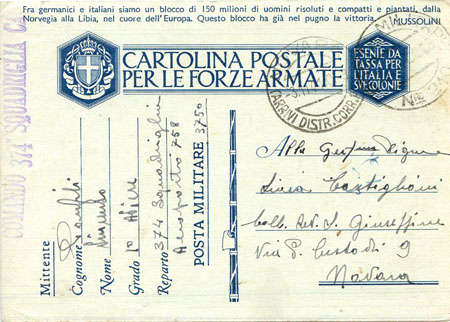 Fra germanici e italiani siamo un blocco di 150 milioni di uomini risoluti e compatti e piantati, dalla
Norvegia alla Libia, nel cuore dell'Europa. Questo blocco ha già nel pugno la vittoria. MUSSOLINI
CARTOLINA POSTALE
PER LE FORZE ARMATE
ESENTE DA
TASSA PER
L'ITALIA E
SVE COLONIE
ARRIVI DISTR. CORR.
COMANDO 374ª SQUADRIGLIA
Mittente
Cognome
Nome
Grado 1° Aviere
Reparto 374 Squadriglia
Aeroporto 758
POSTA MILITARE 3750
Alla
Livia Castiglioni
S. Giuseppine
Via P. Custodi 9
Novara